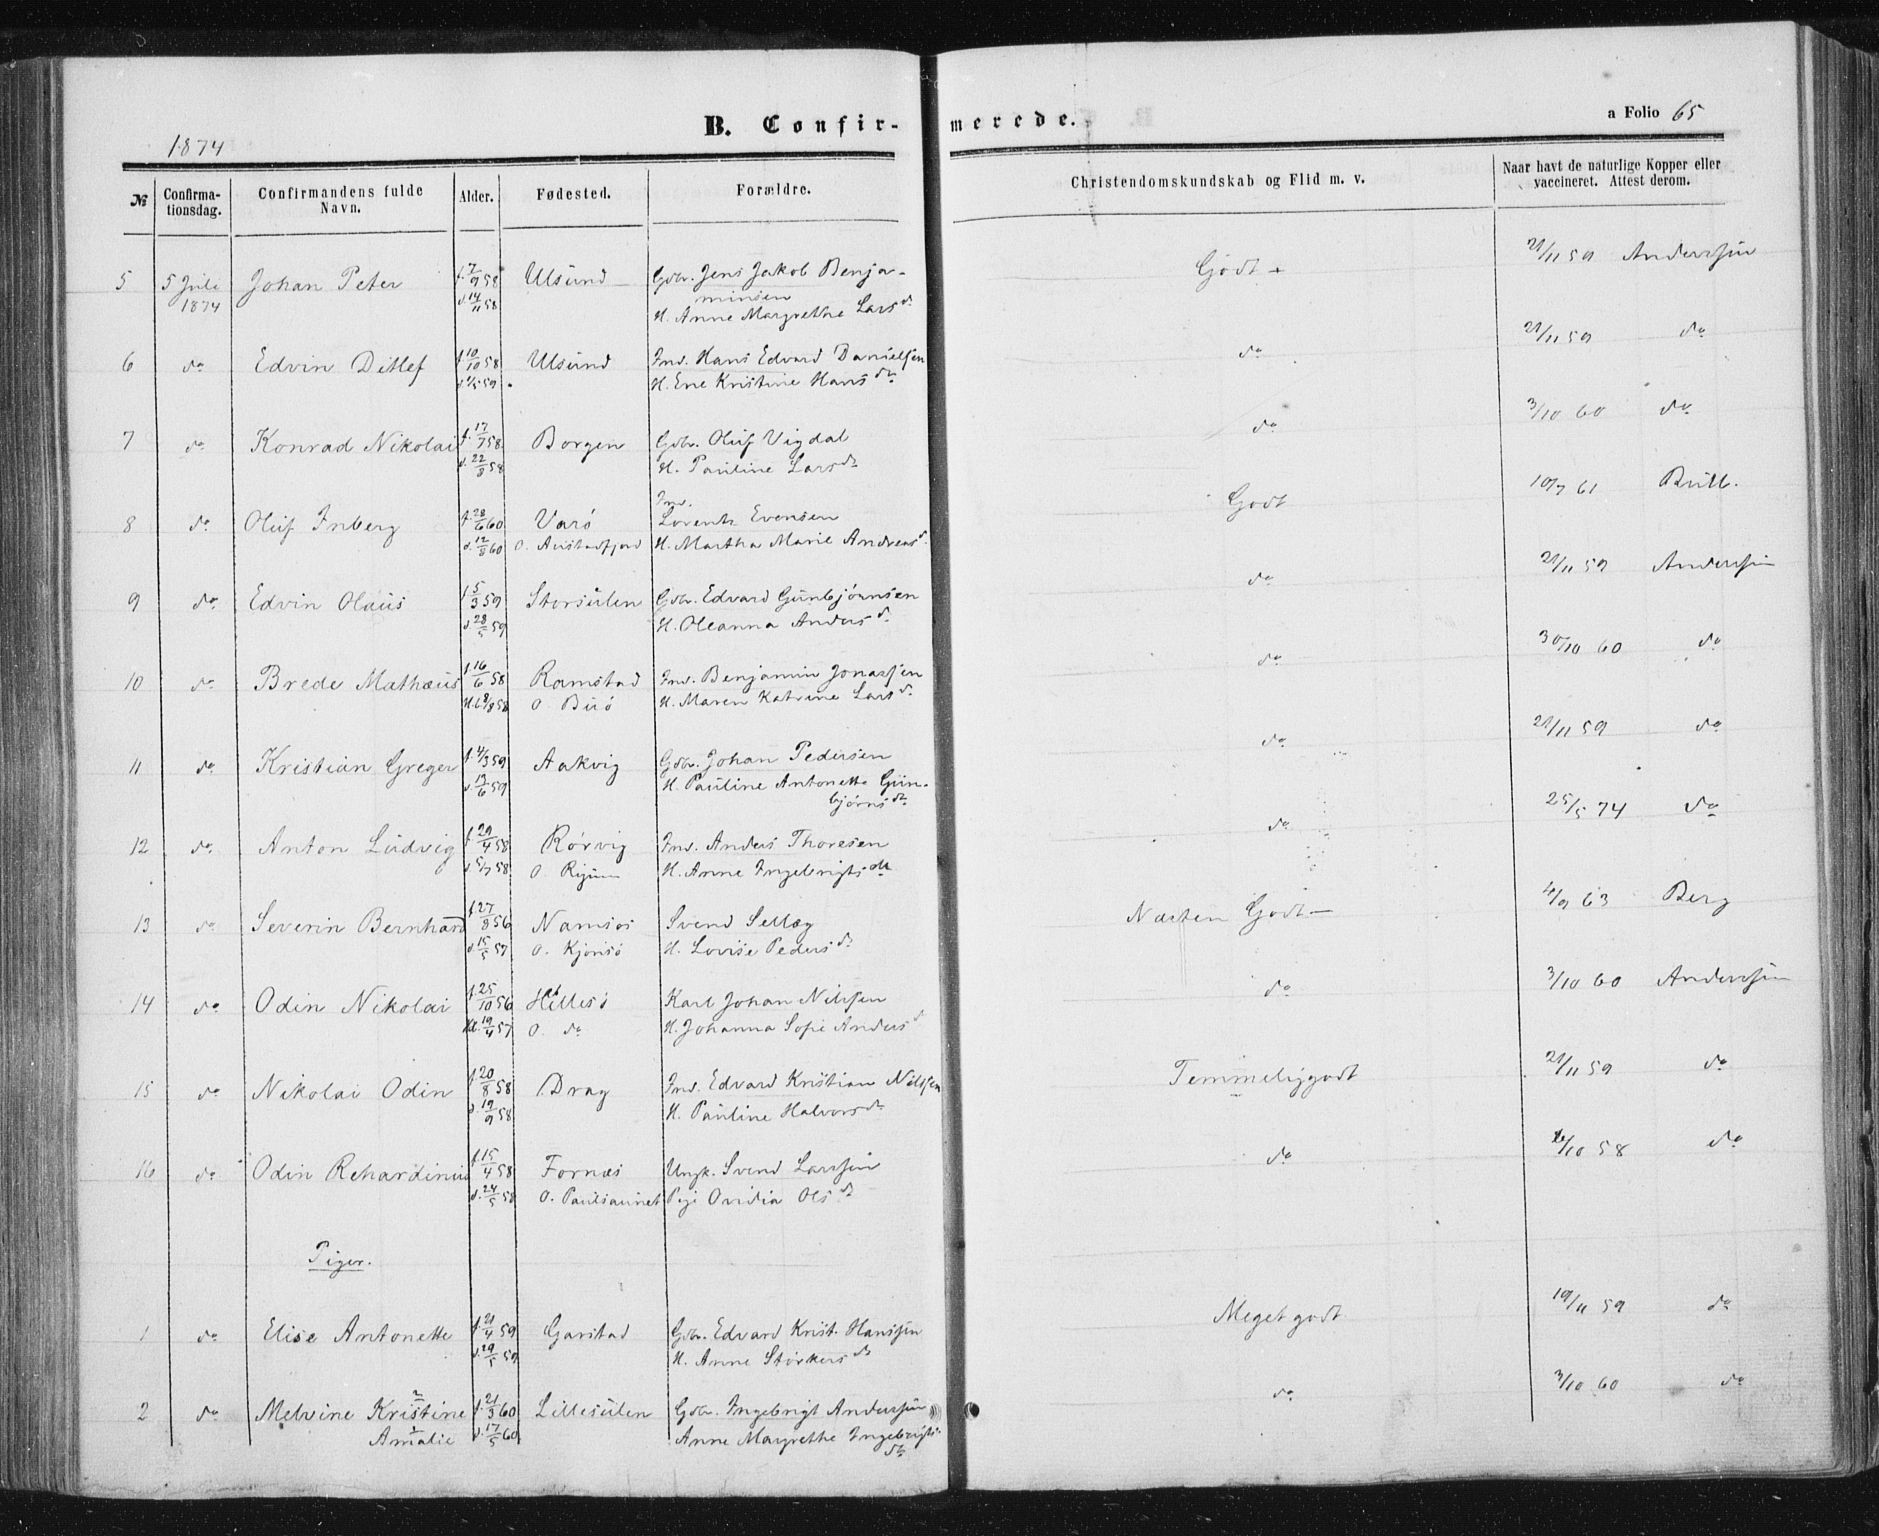 1874
B. Confirmerede.
a Folio 65
№ Confirmationsdag. Confirmandens fulde Navn. Alder. Fødested. Forældre. Christendomskundskab og Flid m. v. Naar havt de naturlige Kopper eller vaccineret. Attest derom.
5 5 Juli Johan Peter f. 7/9 58 Ulsund Gdbr. Jens Jakob Benja- Godt 21/11 59 Anderssen
1874 d. 14/11 58 minsen
H. Anne Margrethe Larsdr
6 do Edvin Ditlef f. 10/10 58 Ulsund Ind. Hans Edvard Danielsen do 21/11 59 do
d. 1/5 59 H. Ene Kristine Hansdr
7 do Konrad Nikolai f. 17/7 58 Borgen Gdbr. Oluf Vigdal do 3/10 60 do
d. 22/8 58 H. Pauline Larsdr
8 do Oluf Inberg f. 28/6 60 Varö Ind. Lorents Evensen Godt 10/7 61
d. 12/8 60 O. Austadfjord H. Martha Marie Andreasd.
9 do Edvin Olaus f. 5/3 59 Storsulen Gdbr. Edvard Gunbjörnsen do 21/11 59 Anderssen
d. 28/5 59 H. Oleanna Andersdr
10 do Brede Mathæus f. 16/6 58 Ramstad Ind. Benjamin Jonassen do 30/10 60 do
H. d. 8/8 58 O. Buö H. Maren Katrine Larsdr
11 do Kristian Greger f. 4/3 59 Aakvig Gdbr. Johan Pedersen do 21/11 59 do
d. 12/6 59 H. Pauline Antonette Gun-
björnsdr
12 do Anton Ludvig f. 29/4 58 Rörvig Ind. Anders Thoresen do 25/5 74 do
d. 5/7 58 O. H. Anne Ingebrigtsdr
13 do Severin Bernhard f. 27/8 56 Namsos Svend Sellæg Næsten Godt 4/9 63 Berg
d. 15/5 57 O. Kjönsö H. Lovise Pedersdr
14 do Odin Nikolai f. 25/10 56 Hillesö Karl Johan Nilssen do 3/10 60 Anderssen
d. 19/4 57 O. do H. Johanna Sofie Andersd
15 do Nikolai Odin f. 20/8 58 Drag Ind. Edvard Kristian Nilssen Temmeliggodt 21/11 59 do
d. 19/9 58 H. Pauline Halvorsdr
16 do Odin Rikardinus f. 15/4 58 Fornæs Ungk. Svend Larssen do /10 58 do
d. 24/5 58 O. Paulsaunet Pige Ovidia Olsdr
Piger.
1 do Elise Antonette f. 21/4 59 Garstad Gdbr. Edvard Krist. Hanssen Meget godt 19/11 59 do
d. 29/5 59 H. Anne Störkersdr
2 do Melvine Kristine f. 21/3 60 Lillesulen Gdbr. Ingebrigt Anderssen do 3/10 60 do
Amalie d. 17/5 60 Anne Margrethe Ingebrigts-
dr